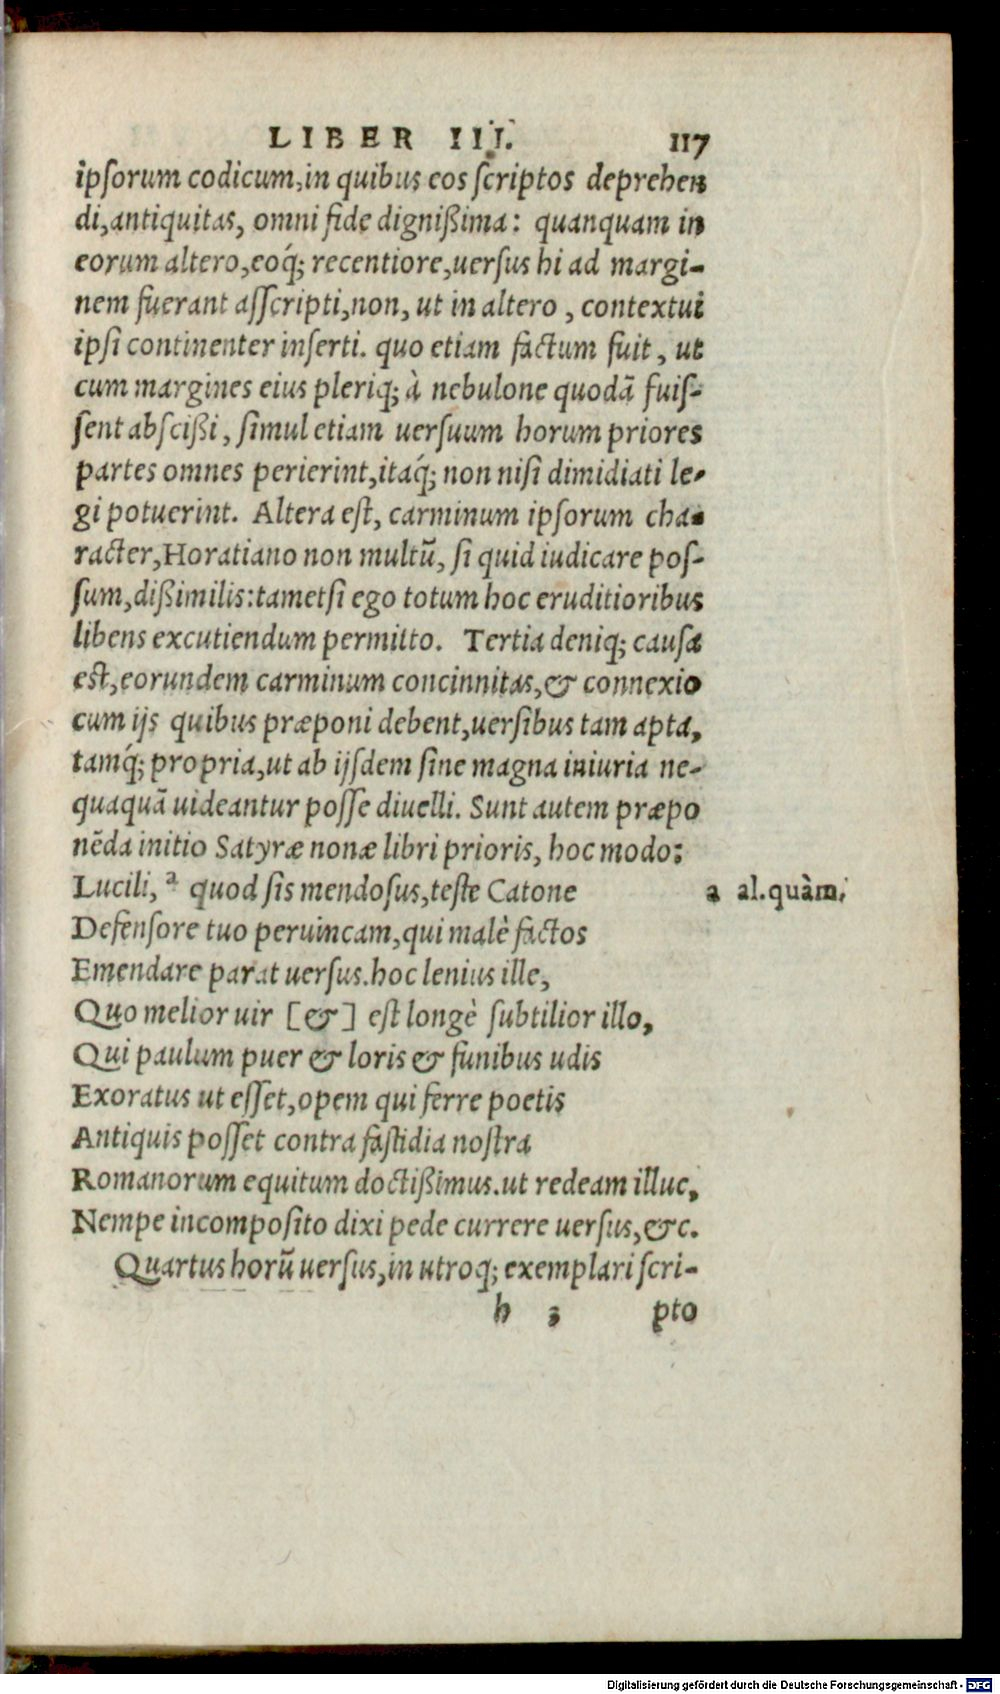 LIBER III. 117
ipsorum codicum, in quibus eos scriptos deprehen
di, antiquitas, omni fide dignißima: quanquam in
eorum altero, eoq́; recentiore, uersus hi ad margi-
nem fuerant asscripti, non, ut in altero, contextui
ipsi continenter inserti. quo etiam factum fuit, ut
cum margines eius pleriq; à nebulone quodā fuis-
sent abscißi, simul etiam uersuum horum priores
partes omnes perierint, itaq́; non nisi dimidiati le-
gi potuerint. Altera est, carminum ipsorum cha-
racter, Horatiano non multū, si quid iudicare pos-
sum, dißimilis: tametsi ego totum hoc eruditioribus
libens excutiendum permitto. Tertia deniq; causa
est, eorundem carminum concinnitas, & connexio
cum ijs quibus præponi debent, uersibus tam apta,
tamq́; propria, ut ab ijsdem sine magna iniuria ne-
quaquā uideantur posse diuelli. Sunt autem præpo
nēda initio Satyræ nonæ libri prioris, hoc modo:
Lucili, ª quod sis mendosus, teste Catone
a al. quàm.
Defensore tuo peruincam, qui malè factos
Emendare parat uersus. hoc lenius ille,
Quo melior uir [&] est longè subtilior illo,
Qui paulum puer & loris & funibus udis
Exoratus ut esset, opem qui ferre poetis
Antiquis posset contra fastidia nostra
Romanorum equitum doctißimus. ut redeam illuc,
Nempe incomposito dixi pede currere uersus, &c.
Quartus horū uersus, in utroq; exemplari scri-
h 3 pto
Digitalisierung gefördert durch die Deutsche Forschungsgemeinschaft - DFG